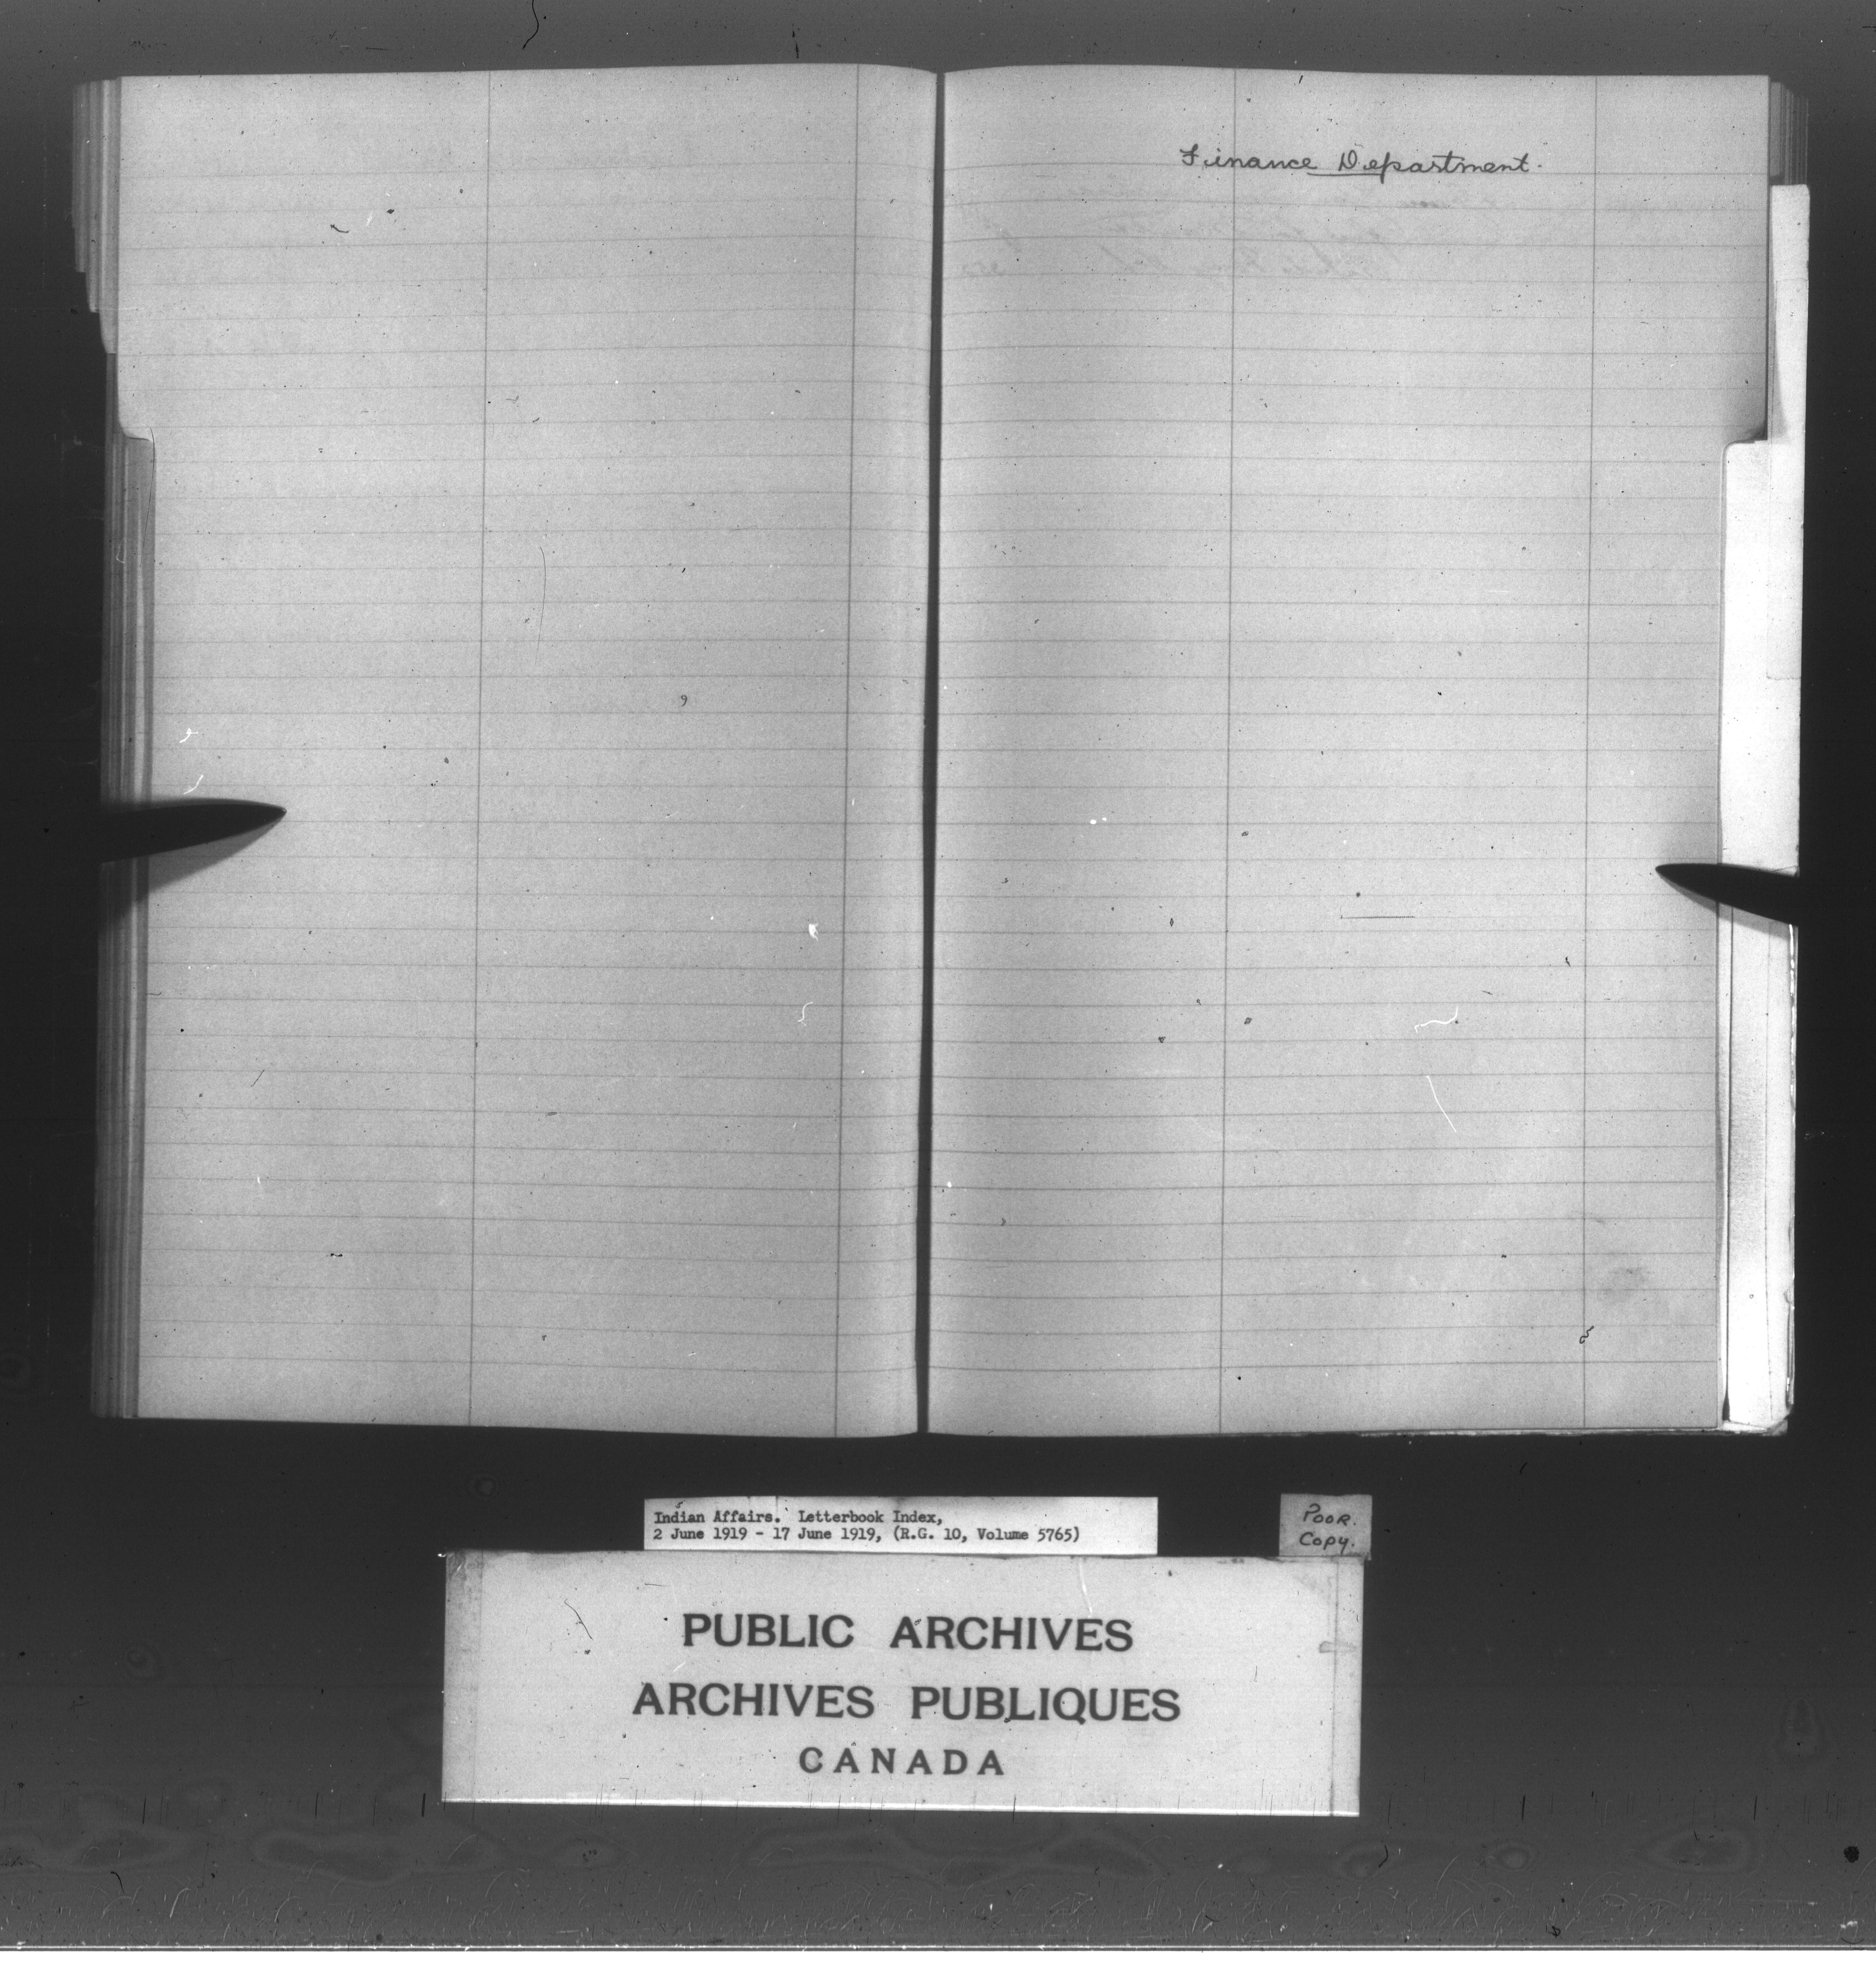 Finance Department.
Indian Affairs. Letterbook Index,
2 June 1919 - 17 June 1919, (R.G. 10, Volume 5765)
POOR.
Copy.
PUBLIC ARCHIVES
ARCHIVES PUBLIQUES
CANADA